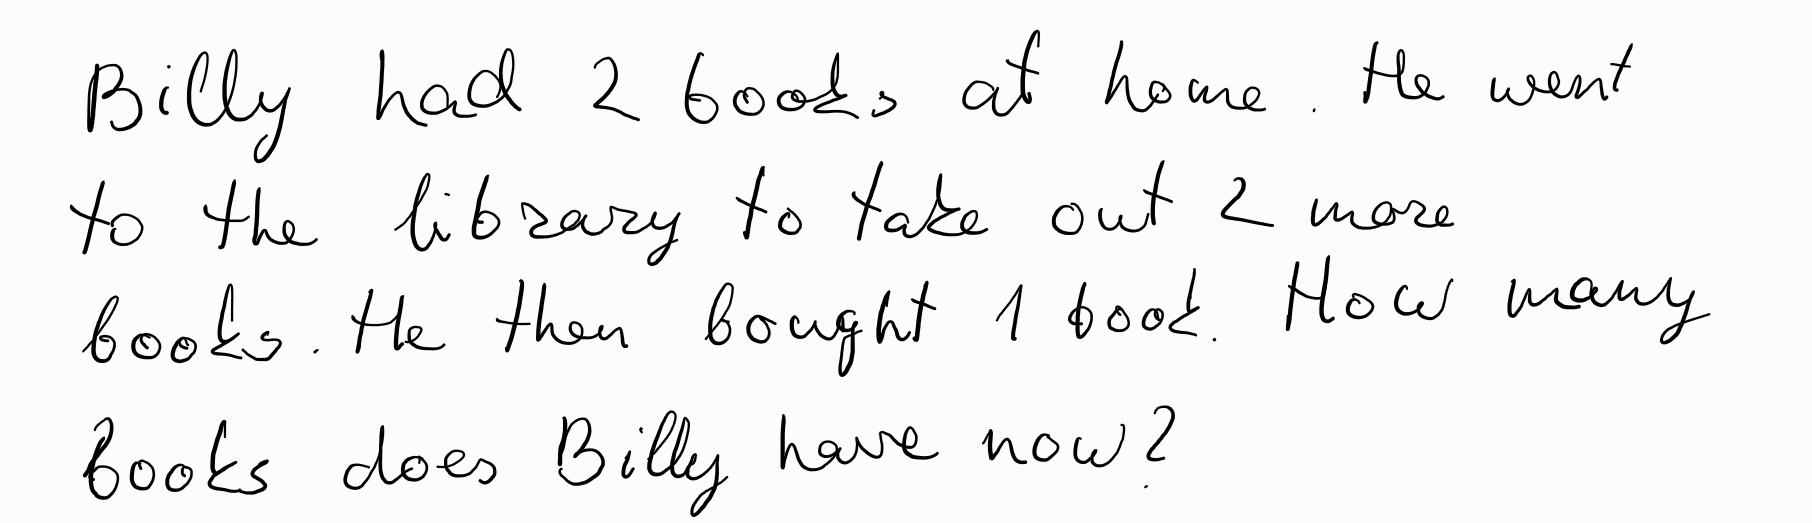 Billy had 2 books at home. He went
to the library to take out 2 more
books. He then bought 1 book. How many
books does Billy have now?